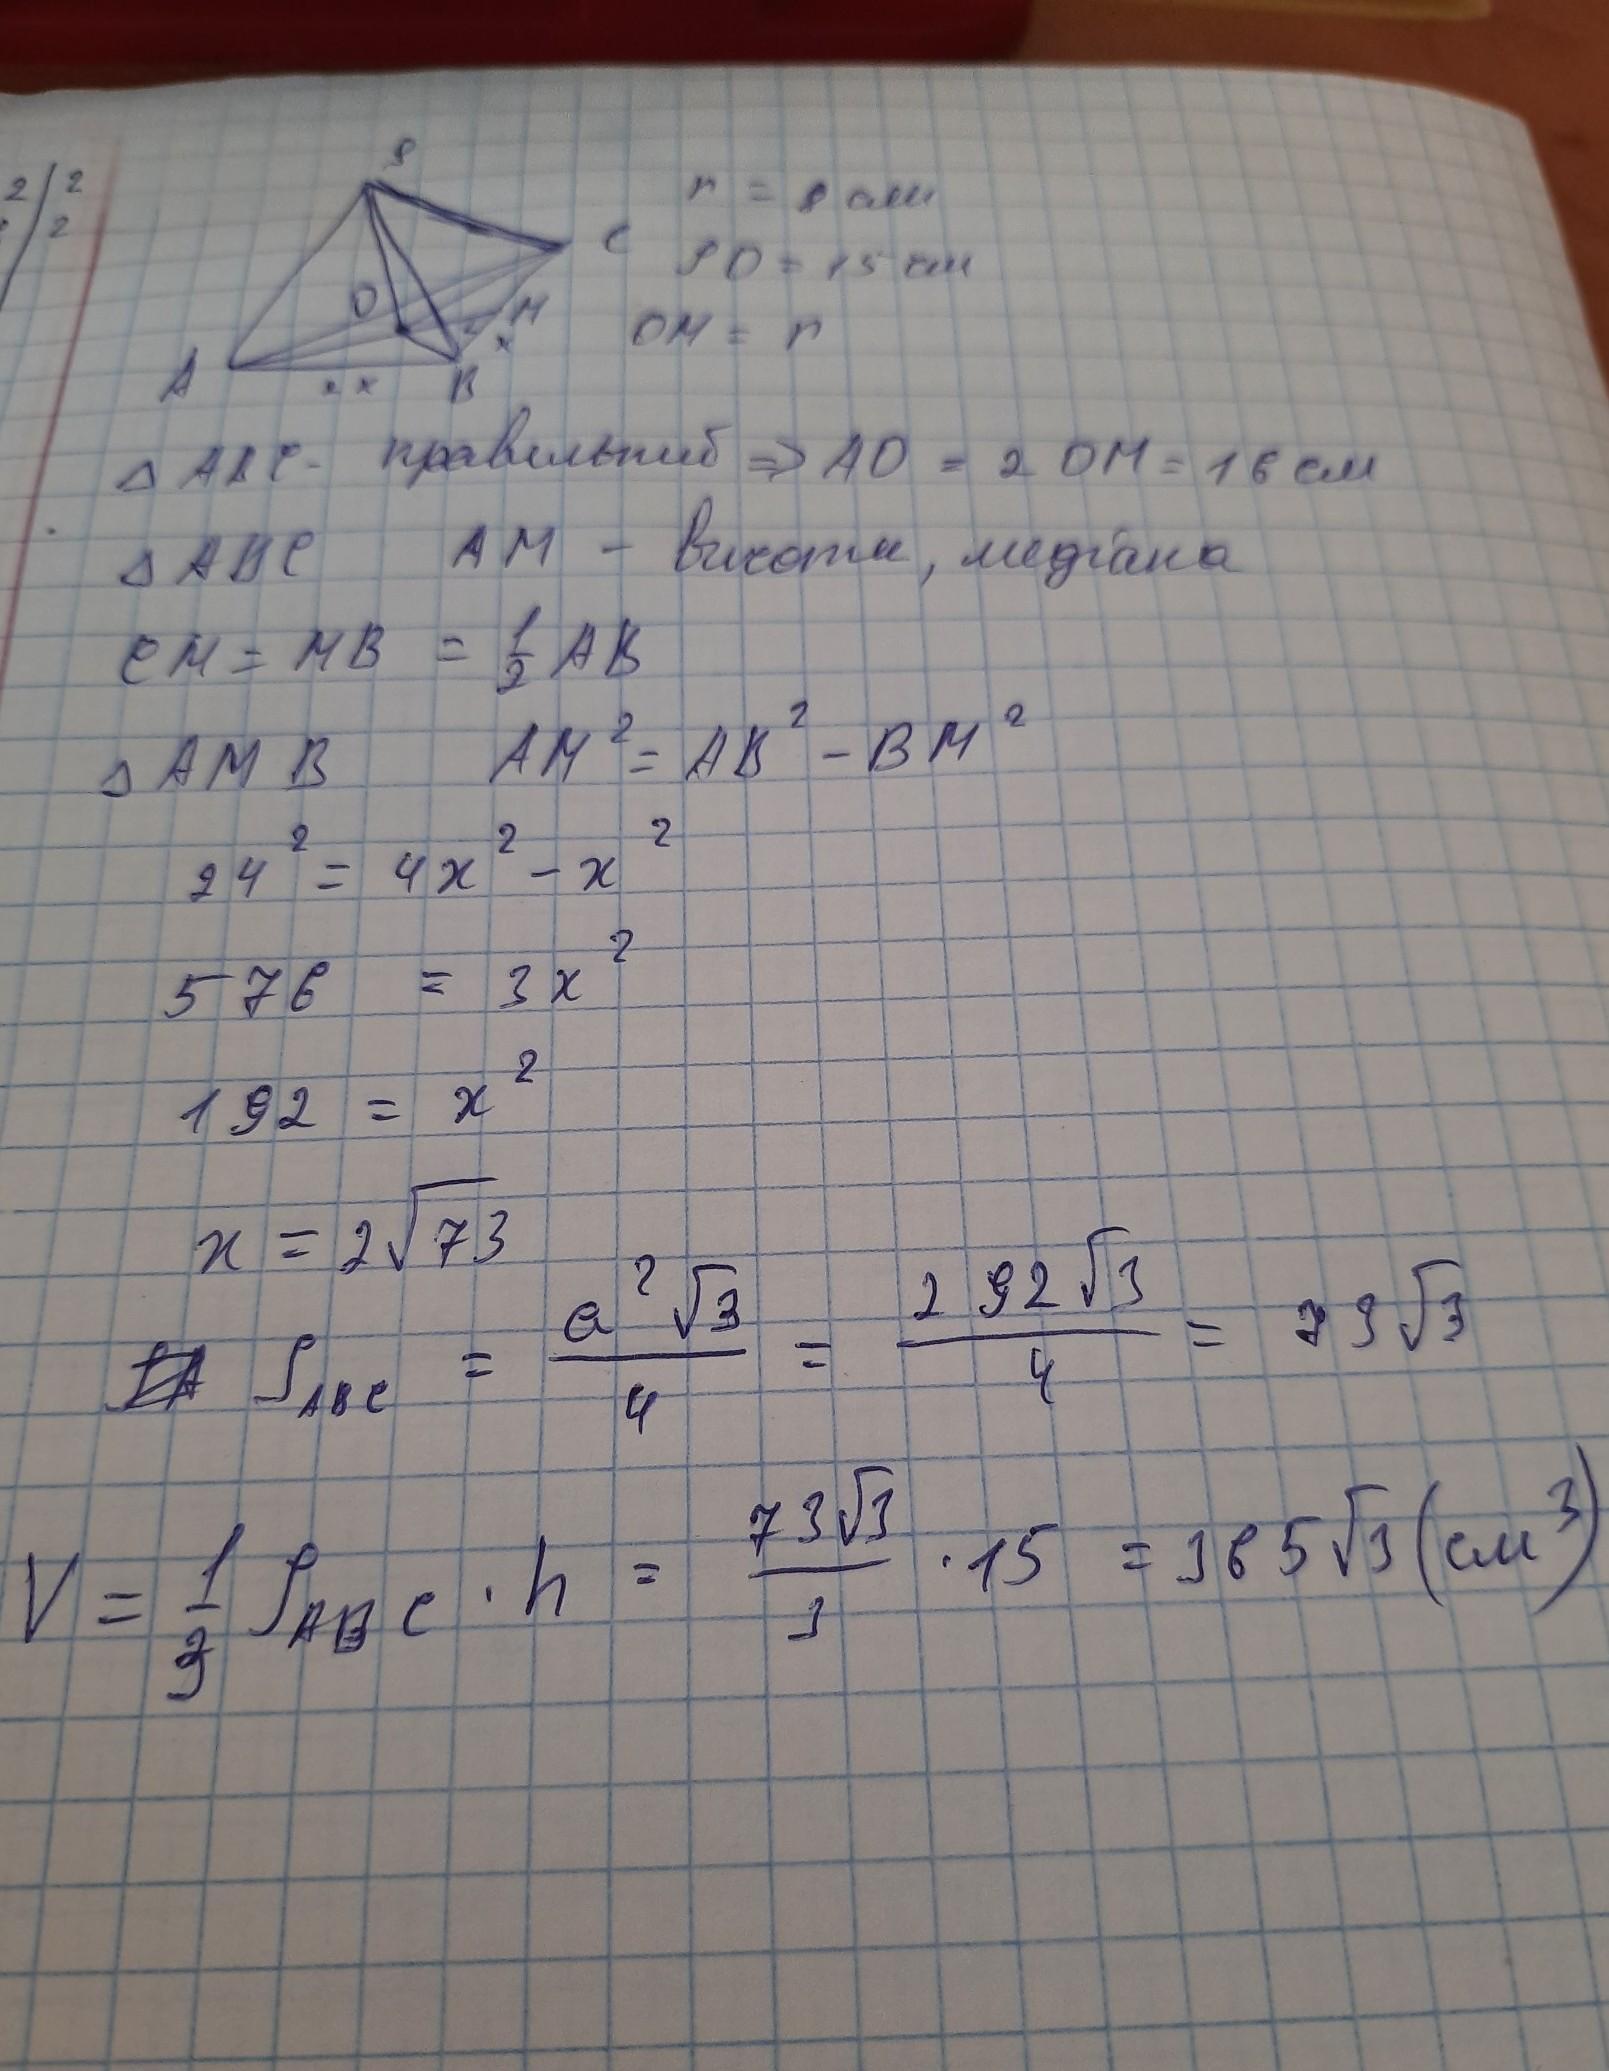 2/2
2
S
C
O
M
x
A
2x
B
r = 8 см
SO = 15 см
OM = r
△ABC - правильний => AO = 2OM = 16 см
△ABC AM - висота, медіана
CM = MB = 1/2 AB
△AMB AM² = AB² - BM²
24² = 4x² - x²
576 = 3x²
192 = x²
x = 2√73
S_ABC = a²√3/4 = 292√3/4 = 73√3
V = 1/3 S_ABC · h = 73√3/3 · 15 = 365√3 (см³)